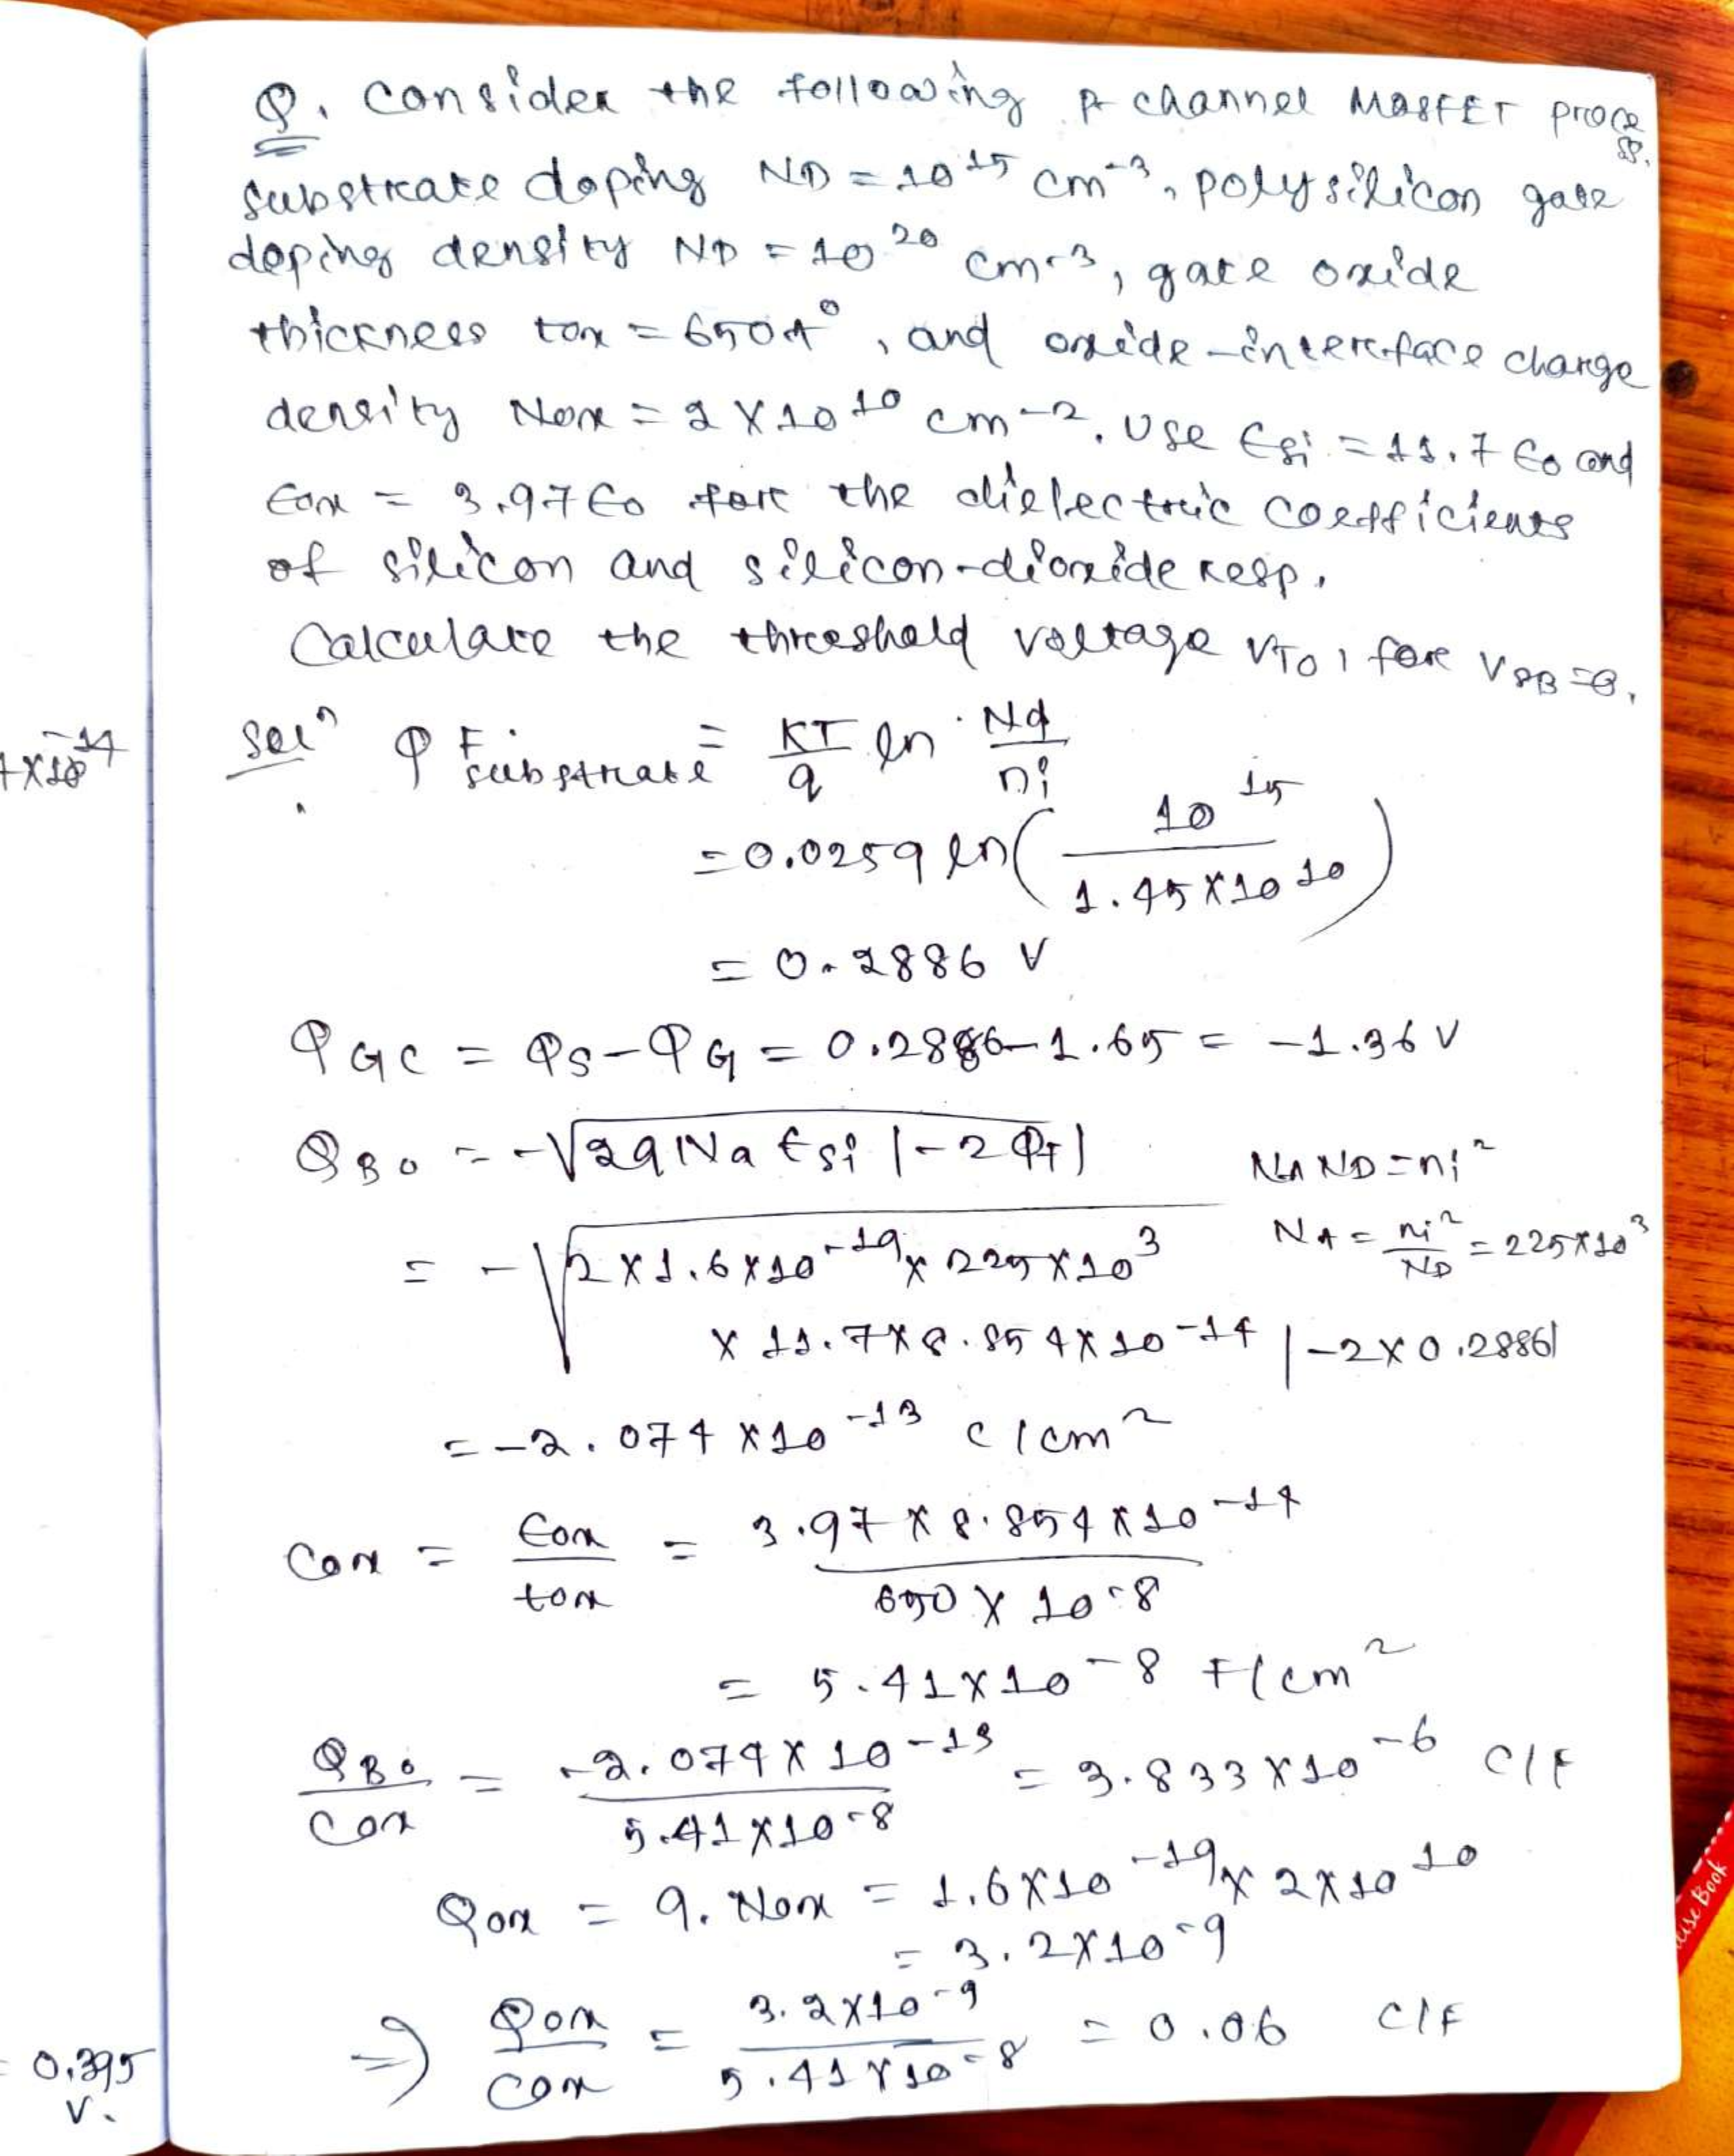 Q. Consider the following p channel MOSFET process.
substrate doping ND = 10^15 cm^-3, polysilicon gate
doping density ND = 10^20 cm^-3, gate oxide
thickness tox = 650A°, and oxide-interface charge
density Nox = 2 X 10^10 cm^-2. Use Esi = 11.7 Eo and
Eox = 3.97 Eo for the dielectric coefficients
of silicon and silicon-dioxide resp.
Calculate the threshold voltage VTO, for VSB=0.
Solⁿ φF substrate = KT/q ln Nd/ni
= 0.0259 ln(10^15 / 1.45X10^10)
= 0.2886 V
φGC = φS - φG = 0.2886-1.65 = -1.36 V
QBo = -√2qNa Esi |-2φf|
NA ND = ni²
= -√2X1.6X10^-19 X 225X10^3
NA = ni²/ND = 225X10^3
X 11.7X8.854X10^-14 |-2X0.2886|
= -2.074 X10^-13 C/cm²
Cox = Eox/tox = 3.97 X 8.854 X10^-14 / 650 X 10^-8
= 5.41X10^-8 F/cm²
QBo/Cox = -2.074X10^-13 / 5.41X10^-8 = 3.833X10^-6 C/F
Qox = q. Nox = 1.6X10^-19 X 2X10^10
= 3.2X10^-9
⇒ Qox/Cox = 3.2X10^-9 / 5.41X10^-8 = 0.06 C/F
= 0.395
V.